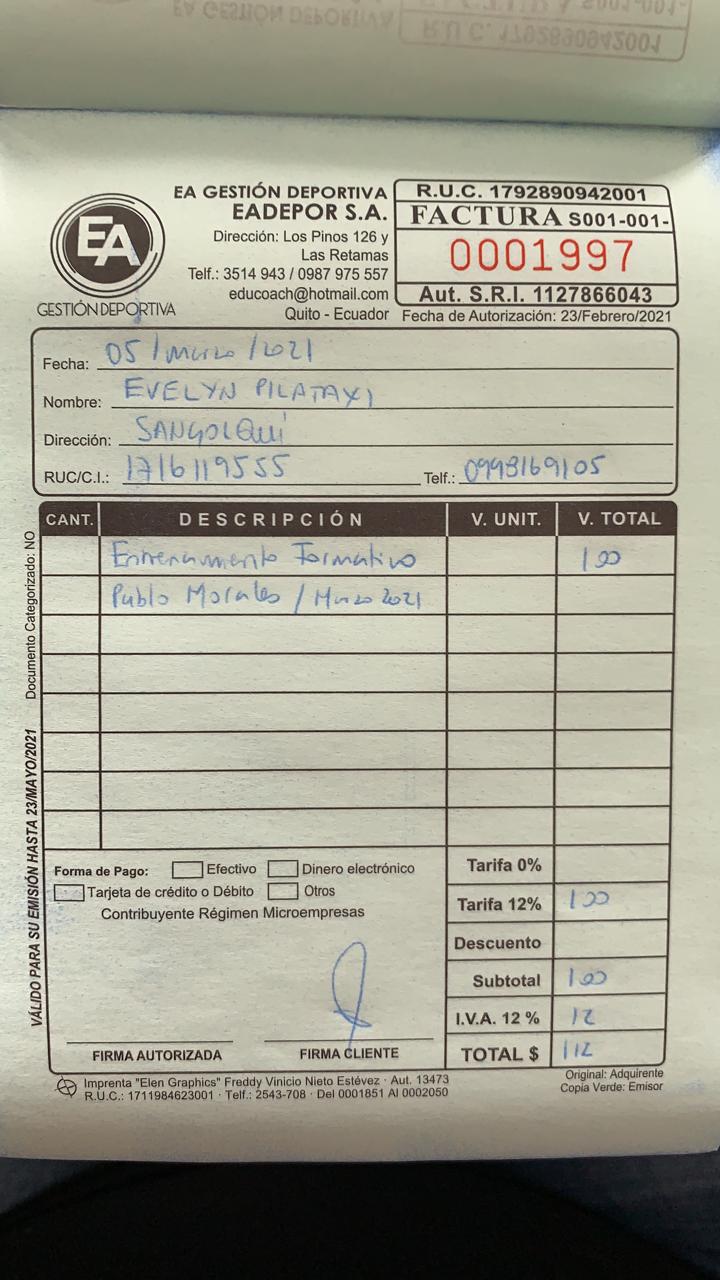 EA GESTIÓN DEPORTIVA
R.U.C. 1792890942001
EA
GESTIÓN DEPORTIVA
EA GESTIÓN DEPORTIVA
EADEPOR S.A.
Dirección: Los Pinos 126 y
Las Retamas
Telf.: 3514 943 / 0987 975 557
educoach@hotmail.com
Quito - Ecuador
R.U.C. 1792890942001
FACTURA S001-001-
0001997
Aut. S.R.I. 1127866043
Fecha de Autorización: 23/Febrero/2021
Fecha: 05 / marzo / 2021
Nombre: EVELYN PILATAXI
Dirección: SANGOLQUÍ
RUC/C.I.: 1716119555 Telf.: 0998169105
CANT. DESCRIPCIÓN V. UNIT. V. TOTAL
Entrenamiento Formativo 100
Pablo Morales / Marzo 2021
Documento Categorizado: NO
VÁLIDO PARA SU EMISIÓN HASTA 23/MAYO/2021
Forma de Pago: Efectivo Dinero electrónico
Tarjeta de crédito o Débito Otros
Contribuyente Régimen Microempresas
FIRMA AUTORIZADA FIRMA CLIENTE
Tarifa 0%
Tarifa 12% 100
Descuento
Subtotal 100
I.V.A. 12 % 12
TOTAL $ 112
Imprenta "Elen Graphics" Freddy Vinicio Nieto Estévez · Aut. 13473
R.U.C.: 1711984623001 · Telf.: 2543-708 · Del 0001851 Al 0002050
Original: Adquirente
Copia Verde: Emisor